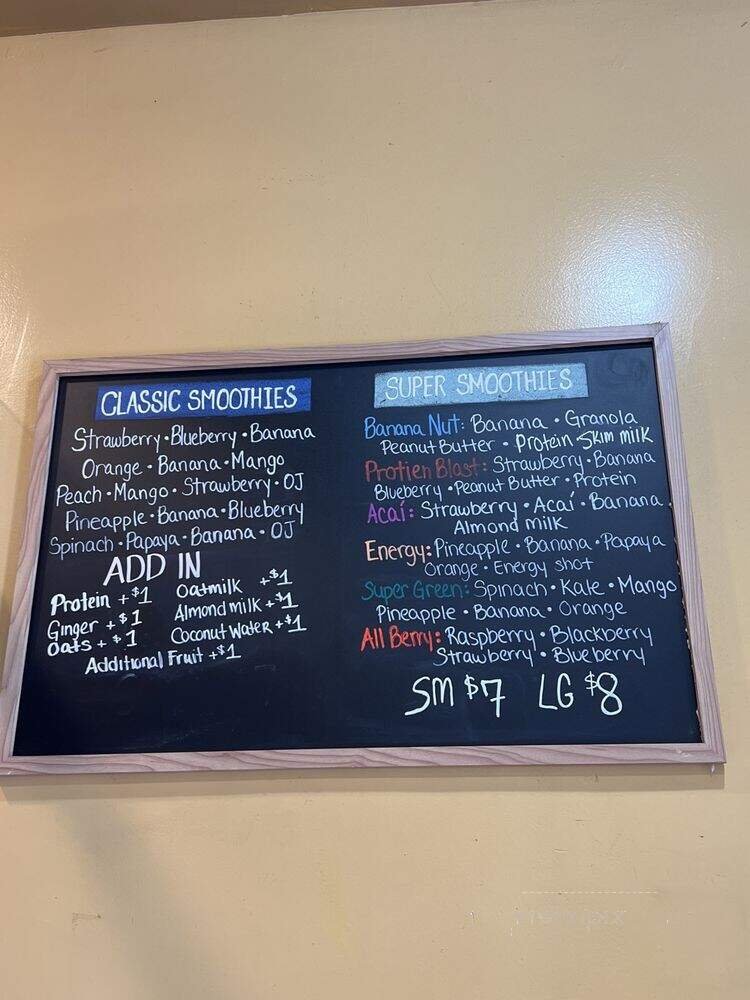 CLASSIC SMOOTHIES
Strawberry • Blueberry • Banana
Orange • Banana • Mango
Peach • Mango • Strawberry • OJ
Pineapple • Banana • Blueberry
Spinach • Papaya • Banana • OJ
ADD IN
Protein +$1
Ginger +$1
Oats + $1
Oatmilk +$1
Almond milk +$1
Coconut Water +$1
Additional Fruit +$1
SUPER SMOOTHIES
Banana Nut: Banana • Granola
Peanut Butter • Protein Skim milk
Protien Blast: Strawberry • Banana
Blueberry • Peanut Butter • Protein
Acaí: Strawberry • Acaí • Banana
Almond milk
Energy: Pineapple • Banana • Papaya
Orange • Energy shot
Super Green: Spinach • Kale • Mango
Pineapple • Banana • Orange
All Berry: Raspberry • Blackberry
Strawberry • Blueberry
SM $7 LG $8